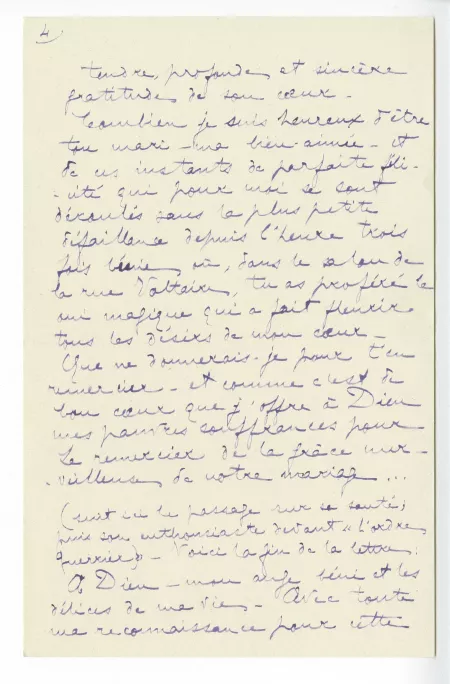 4
tendre, profonde et sincère
gratitude de son cœur -
Combien je suis heureux d'être
ton mari - ma bien-aimée - et
de ces instants de parfaite féli-
- cité qui pour moi se sont
déroulés sans la plus petite
défaillance depuis l'heure trois
fois bénie où, dans le salon de
la rue Voltaire, tu as proféré le
oui magique qui a fait fleurir
tous les désirs de mon cœur -
Que ne donnerais-je pour t'en
remercier - et comme c'est de
bon cœur que j'offre à Dieu
mes pauvres souffrances pour
Le remercier de la grâce mer-
- veilleuse de notre mariage ...
(suit ici le passage sur sa santé,
puis son enthousiasme devant "L'ordre
guerrier") - Voici la fin de la lettre :
À Dieu - mon ange béni et les
délices de ma vie - Avec toute
ma reconnaissance pour cette